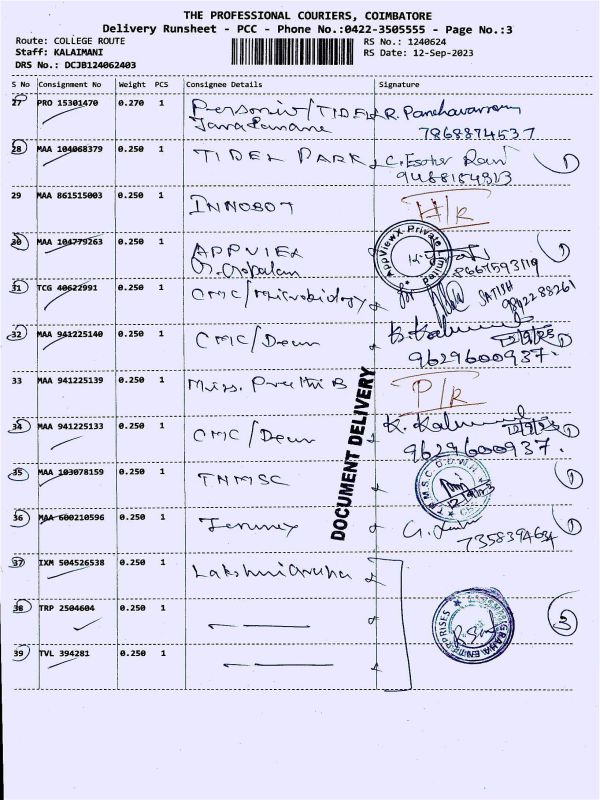 THE PROFESSIONAL COURIERS, COIMBATORE
Delivery Runsheet - PCC - Phone No.:0422-3505555 - Page No.:3
Route: COLLEGE ROUTE
RS No.: 1240624
Staff: KALAIMANI
RS Date: 12-Sep-2023
DRS No.: DCJB124062403
S No Consignment No Weight PCS Consignee Details Signature
27 PRO 15301470 0.270 1 /TIDEL R.
7868874537
28 MAA 104068379 0.250 1 TIDEL PARK C. 1
9488184313
29 MAA 861515003 0.250 1 INNOBOT H/R
30 MAA 104779263 0.250 1 APPVIEX AppViewX Private Limited 1
G. Gopalan 8667593119
31 TCG 40622991 0.250 1 CMC/Microbiology for SATISH
9842288261
32 MAA 941225140 0.250 1 CMC/Dean K. 12/9/23 1
9629600937.
33 MAA 941225139 0.250 1 Miss. Preethi B P/R
34 MAA 941225133 0.250 1 CMC/Dean K. 12/9/23 1
9629600937.
DOCUMENT DELIVERY
35 MAA 103078159 0.250 1 TNMSC 1
36 MAA 600210596 0.250 1 G. 1
7358394634
37 IXM 504526538 0.250 1
38 TRP 2504604 0.250 1 ENTERPRISES 3
39 TVL 394281 0.250 1